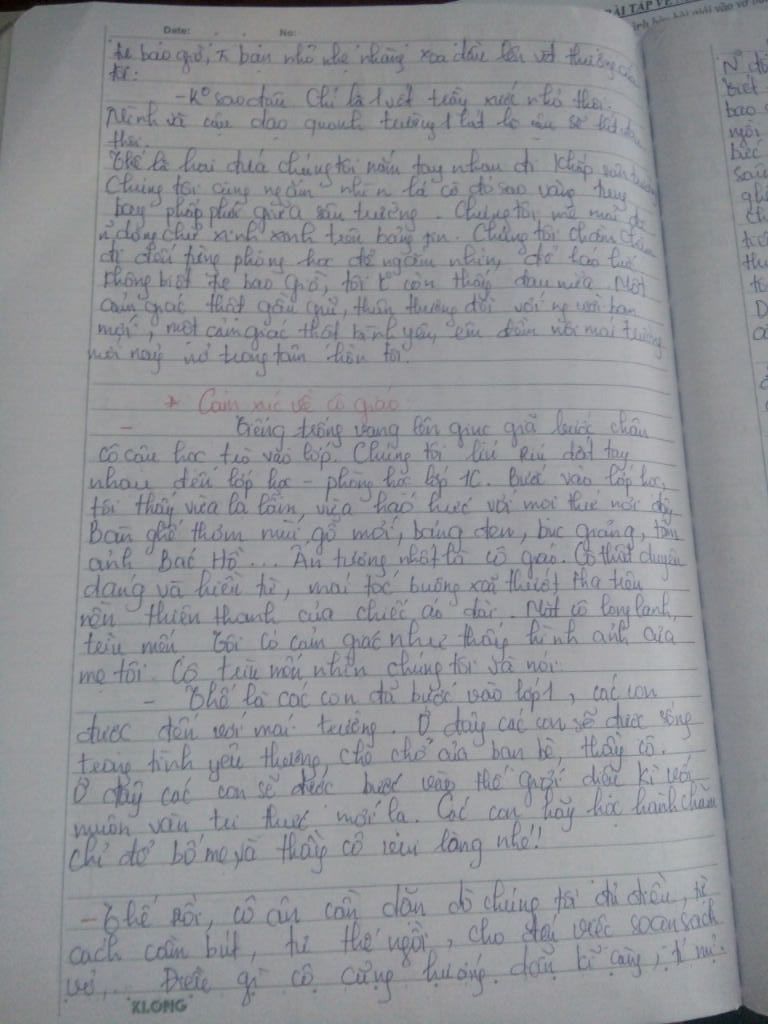 Date: . . No:
bao giờ, bạn nhỏ nhẹ nhàng xoa dầu lên vết thương của
tôi:
- Ko sao đâu Chỉ là 1 vết trầy xước nhỏ thôi.
Mình và cậu dạo quanh trường 1 lát là cậu sẽ
thôi.
Thế là hai đứa chúng tôi nắm tay nhau đi khắp sân trường
Chúng tôi cùng ngắm nhìn lá cờ đỏ sao vàng tung
bay phấp phới giữa sân trường. Chúng tôi mê mải
dòng chữ xinh xinh trên bảng tin. Chúng tôi chầm chậm
đi đến từng phòng học để ngắm nhìn, để
không biết tự bao giờ, tôi k còn thấy đau nữa. Một
cảm giác thật gần gũi, thân thương đối với người bạn
mới, một cảm giác thật bình yên, êm đềm nơi mái trường
mới này nở trong tâm hồn tôi.
* Cảm xúc về cô giáo
- Tiếng trống vang lên giục giã bước chân
cô cậu học trò vào lớp. Chúng tôi líu ríu dắt tay
nhau đến lớp học - phòng học lớp 1C. Bước vào lớp học,
tôi thấy vừa lạ lẫm, vừa háo hức với mọi thứ nơi đây
Bàn ghế thơm mùi gỗ mới, bảng đen, bục giảng, tấm
ảnh Bác Hồ... Ấn tượng nhất là cô giáo. Cô thật duyên
dáng và hiền từ, mái tóc buông xoã thướt tha trên
nền thiên thanh của chiếc áo dài. Mắt cô long lanh,
trìu mến. Tôi có cảm giác như thấy hình ảnh của
mẹ tôi. Cô trìu mến nhìn chúng tôi và nói:
- Thế là các con đã bước vào lớp 1, các con
được đến với mái trường. Ở đây các con sẽ được sống
trong tình yêu thương, che chở của bạn bè, thầy cô.
Ở đây các con sẽ được bước vào thế giới diệu kì với
muôn vàn tri thức mới lạ. Các con hãy học hành chăm
chỉ để bố mẹ và thầy cô vui lòng nhé!!
- Thế rồi, cô ân cần dặn dò chúng tôi đủ điều, từ
cách cầm bút, tư thế ngồi, cho đến việc soạn sách
vở,... Điều gì cô cũng hướng dẫn kĩ càng, tỉ mỉ.
KLONG
BÀI TẬP VỀ